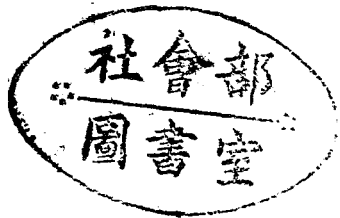 社會部
圖書室